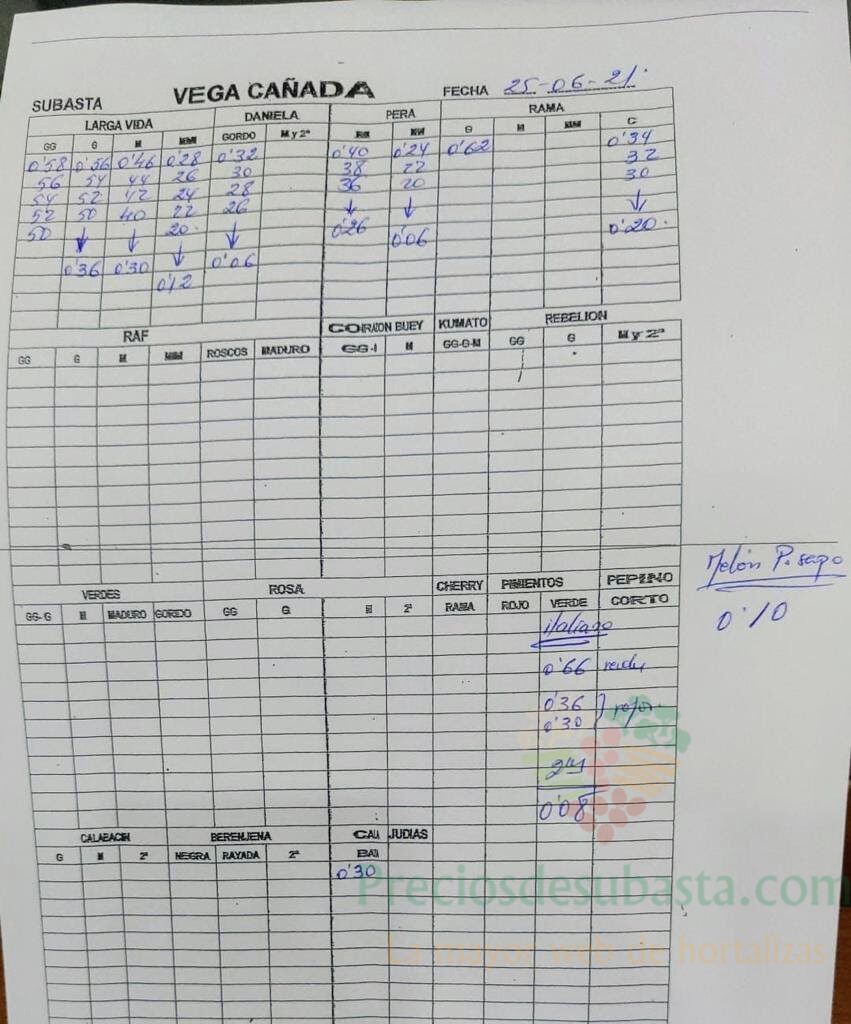 SUBASTA VEGA CAÑADA FECHA 25-06-21
LARGA VIDA DANIELA PERA RAMA
GG G M MM GORDO M y 2ª G M MM C
0'58 0'56 0'46 0'28 0'32 0'40 0'24 0'62 0'34
56 54 44 26 30 38 22 32
54 52 42 24 28 36 20 30
52 50 40 22 26 ↓ ↓ ↓
50 ↓ ↓ 20 ↓ 0'26 0'06 0'20
0'36 0'30 ↓ 0'06
0'12
RAF CORAZON BUEY KUMATO REBELION
GG G M MM ROSCOS MADURO GG-1 M GG-G-M GG G M y 2ª
VERDES ROSA CHERRY PIMIENTOS PEPINO
GG-G M MADURO GORDO GG G M 2ª RAMA ROJO VERDE CORTO
italiano
0'66
0'36
0'30
24
0'08
Melón P. sapo
0'10
CALABACIN BERENJENA JUDIAS
G M 2ª NEGRA RAYADA 2ª
0'30
Preciosdesubasta.com
La mayor web de hortalizas